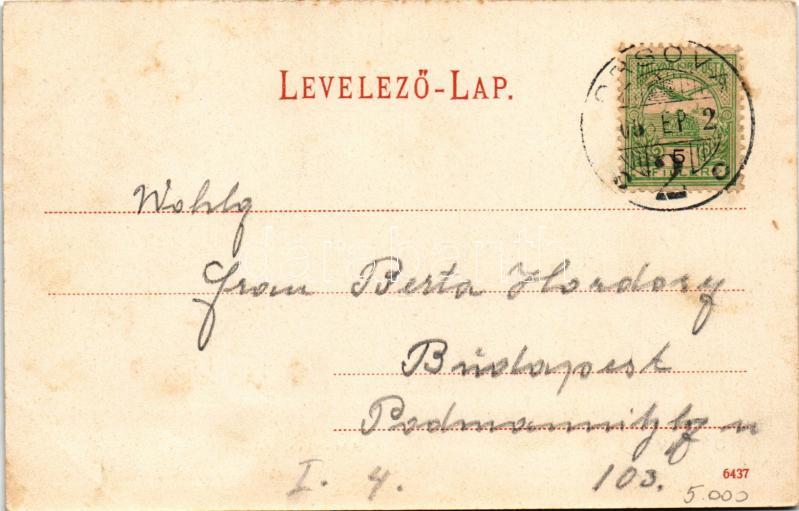 LEVELEZŐ-LAP.
ORSOVA
SEP 2
5
2
Wohlg
Frau Berta Hordosy
Budapest
Podmannitzky u
I. 4. 103.
6437
5.000
darabanth